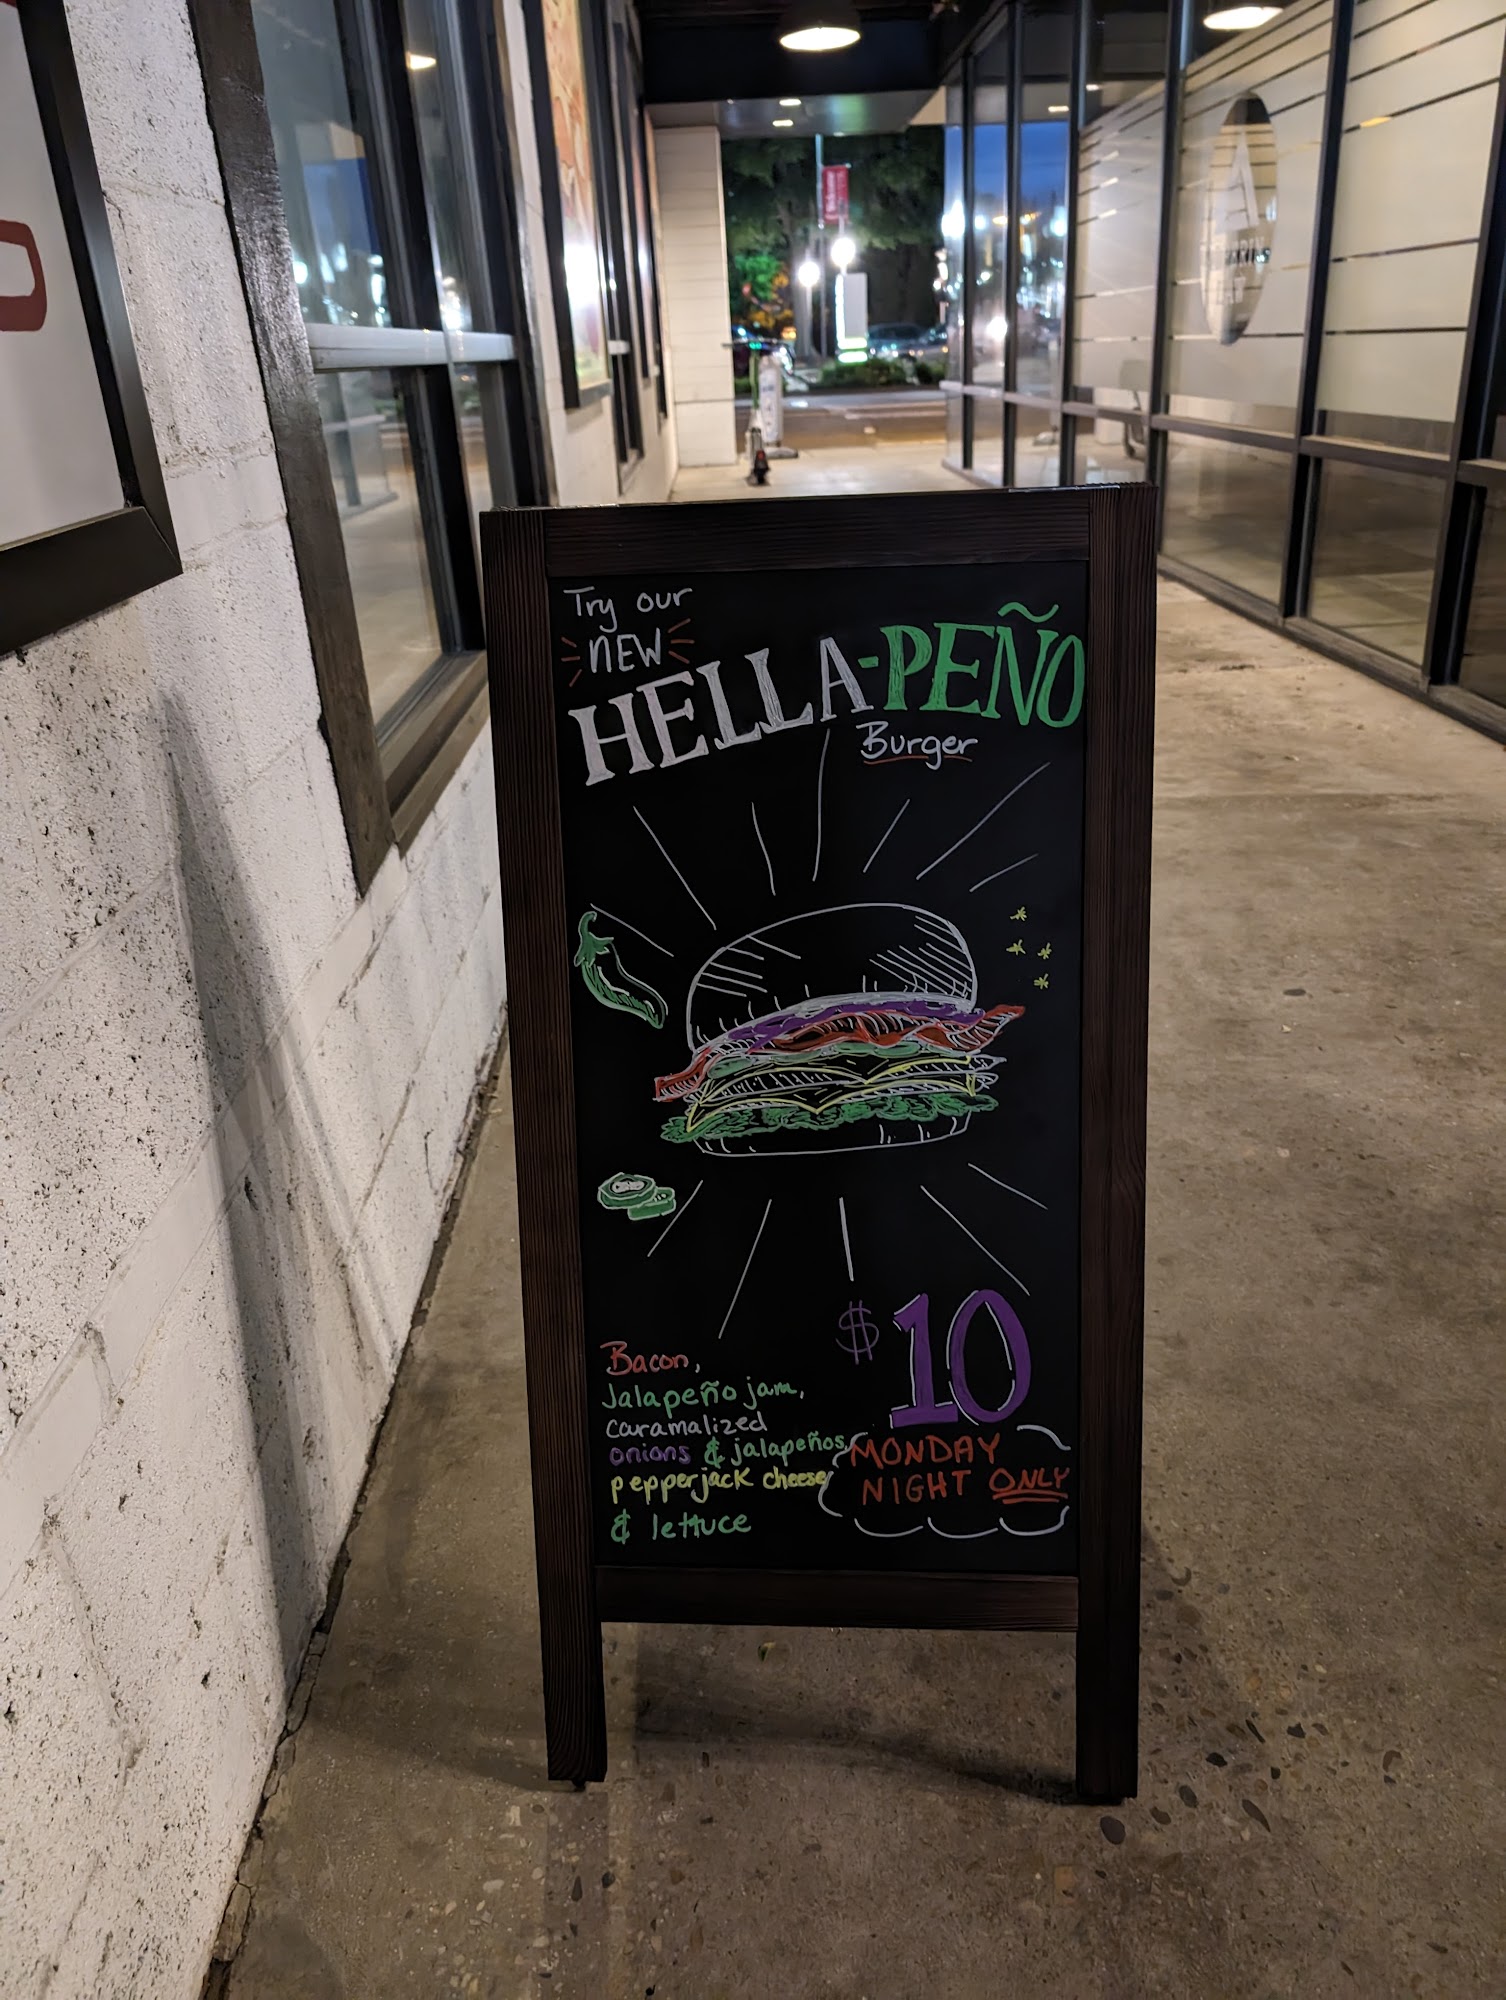 Try our
NEW
HELLA-PEÑO
Burger
$10
Bacon,
Jalapeño jam,
caramalized
onions & jalapeños,
pepperjack cheese
& lettuce
MONDAY
NIGHT ONLY